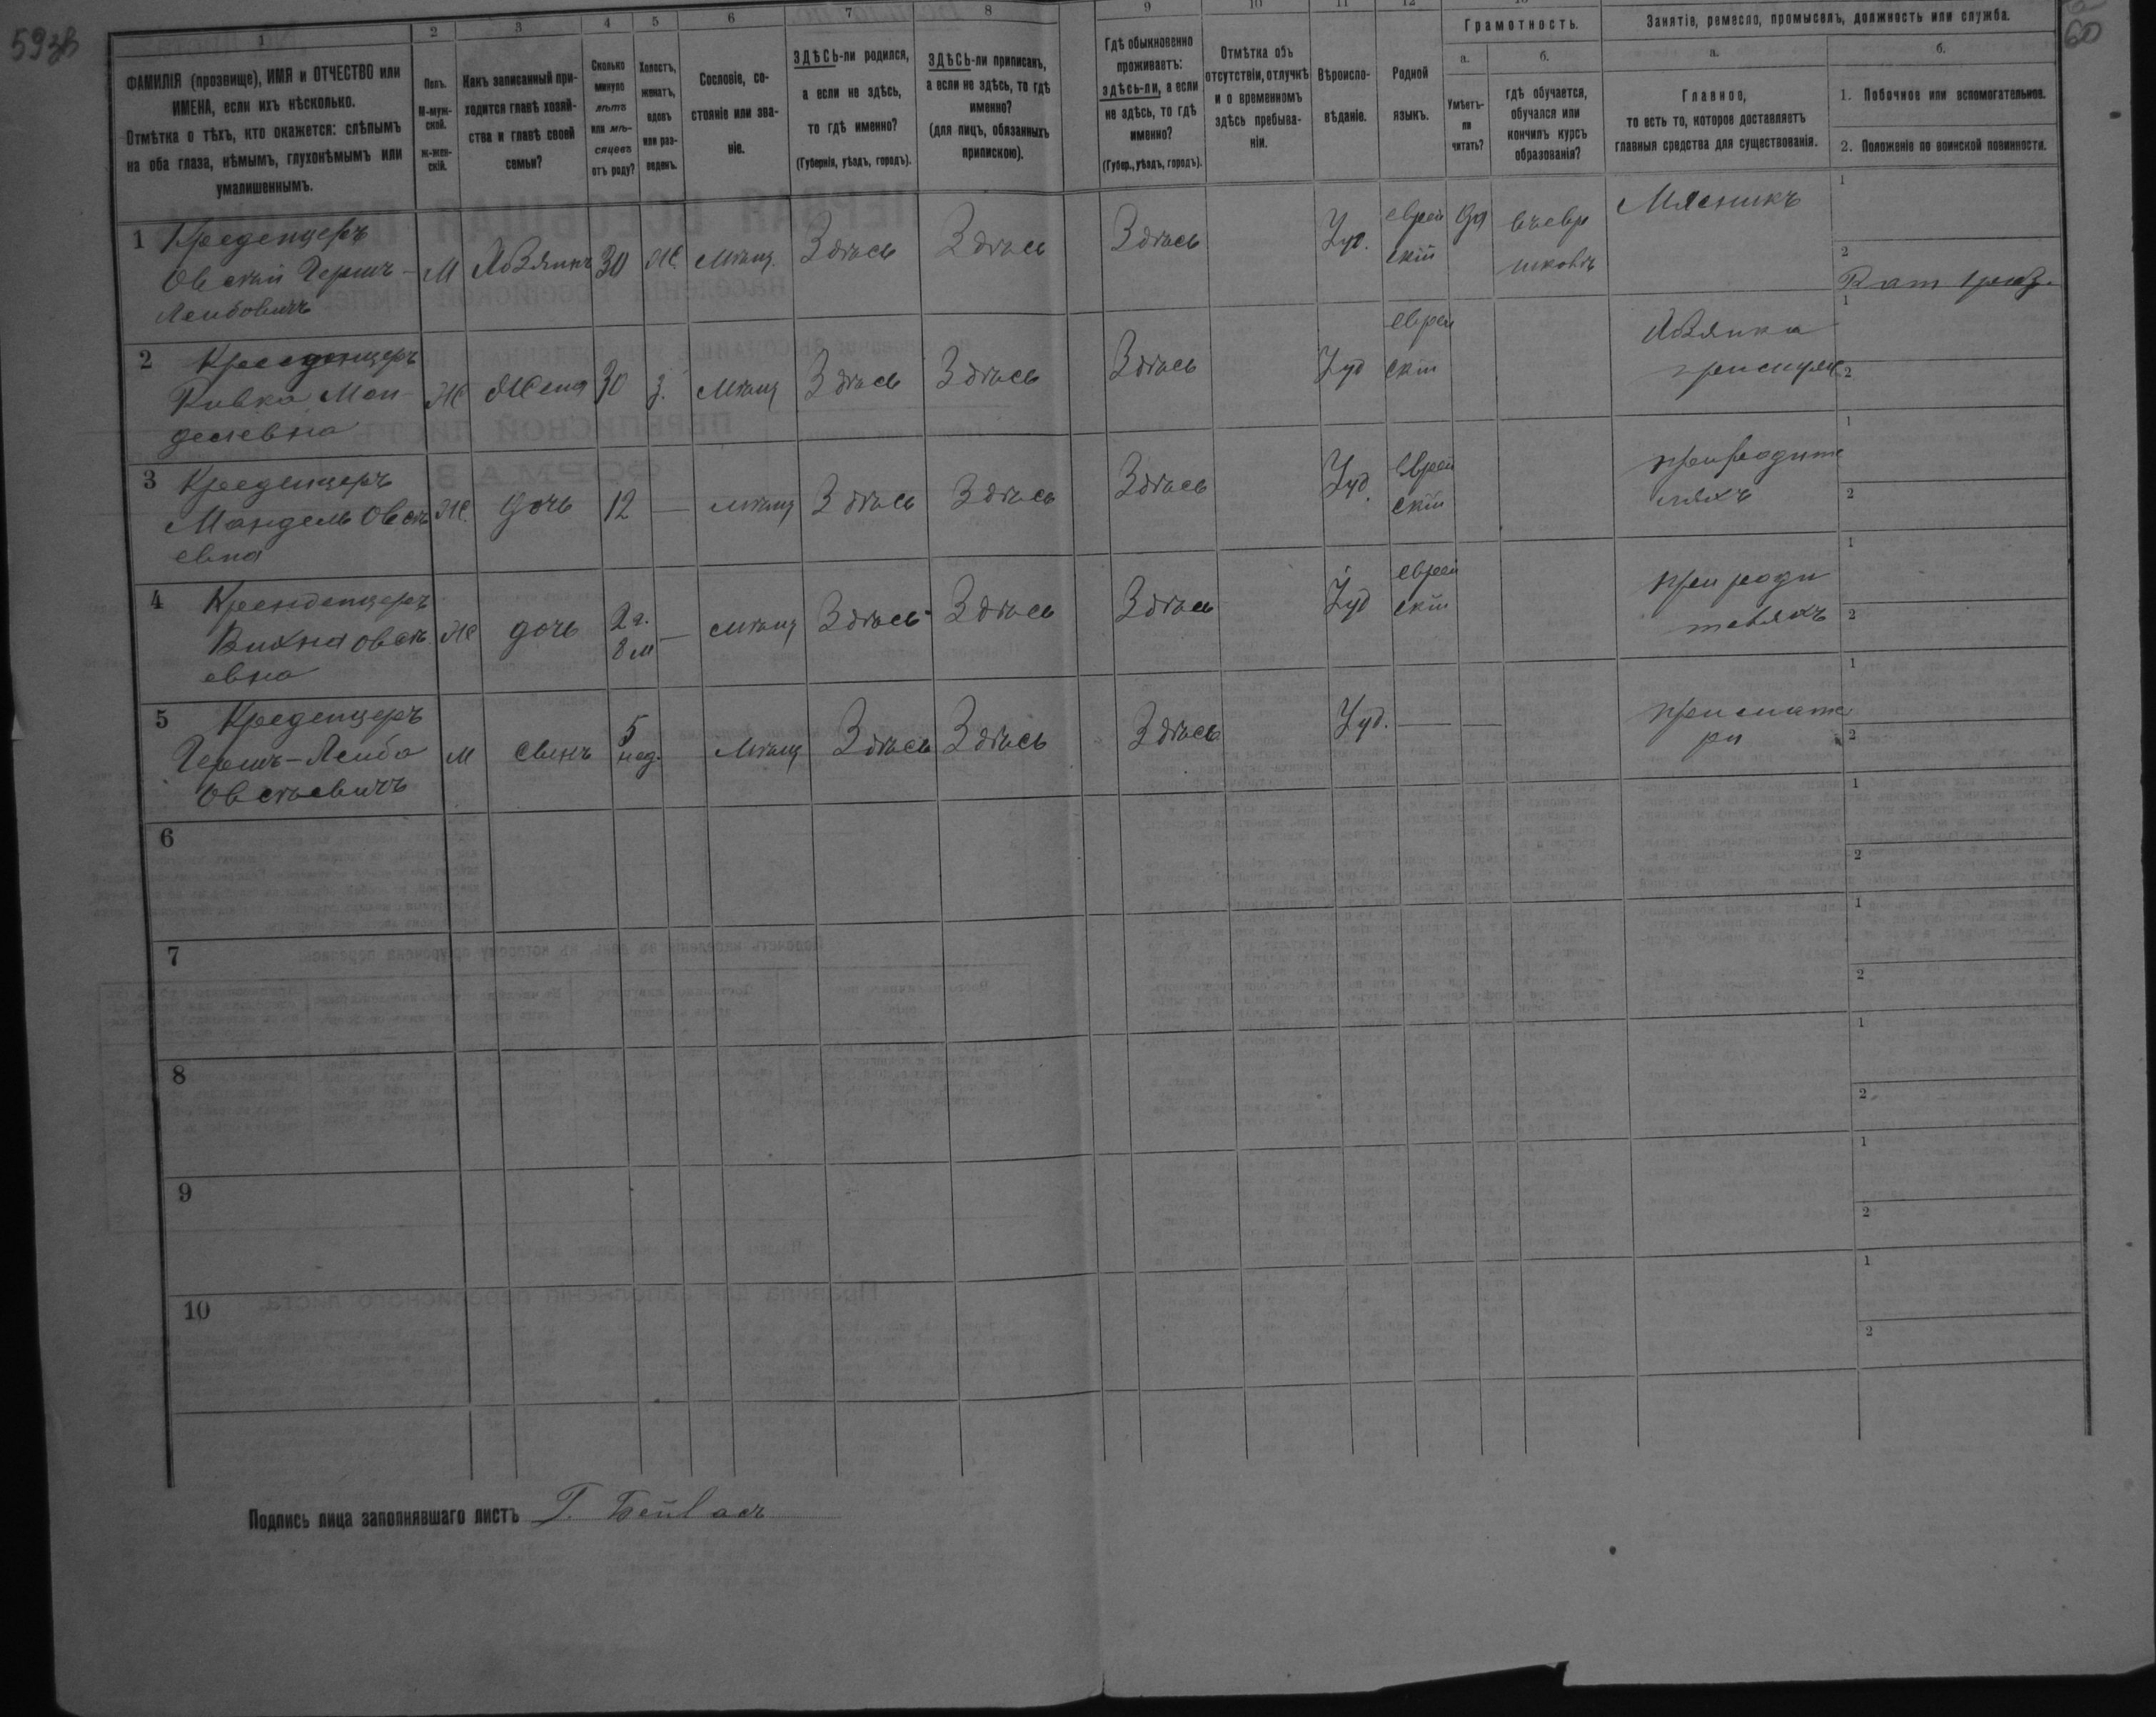 593в
60
1
2
3
4
5
6
7
8
9
10
11
12
ФАМИЛІЯ (прозвище), ИМЯ и ОТЧЕСТВО или
ИМЕНА, если ихъ нѣсколько.
Отмѣтка о тѣхъ, кто окажется: слѣпымъ
на оба глаза, нѣмымъ, глухонѣмымъ или
умалишеннымъ.
Полъ.
М-муж-
ской.
ж-жен-
скій.
Какъ записанный при-
ходится главѣ хозяй-
ства и главѣ своей
семьи?
Сколько
минуло
лѣтъ
или мѣ-
сяцевъ
отъ роду?
Холостъ,
женатъ,
вдовъ
или раз-
веденъ.
Сословіе, со-
стояніе или зва-
ніе.
ЗДѢСЬ-ли родился,
а если не здѣсь,
то гдѣ именно?
(Губернія, уѣздъ, городъ).
ЗДѢСЬ-ли приписанъ,
а если не здѣсь, то гдѣ
именно?
(для лицъ, обязанныхъ
припискою).
Гдѣ обыкновенно
проживаетъ:
здѣсь-ли, а если
не здѣсь, то гдѣ
именно?
(Губер., уѣздъ, городъ).
Отмѣтка объ
отсутствіи, отлучкѣ
и о временномъ
здѣсь пребыва-
ніи.
Вѣроиспо-
вѣданіе.
Родной
языкъ.
Грамотность.
а.
Умѣетъ-
ли
читать?
б.
гдѣ обучается,
обучался или
кончилъ курсъ
образованія?
Занятіе, ремесло, промыселъ, должность или служба.
а.
Главное,
то есть то, которое доставляетъ
главныя средства для существованія.
б.
1. Побочное или вспомогательное.
2. Положеніе по воинской повинности.
1 Креденцеръ
Овсѣй Гершъ-
Лейбовичъ
М
хозяинъ
30
ж.
мѣщ.
Здѣсь
Здѣсь
Здѣсь
Iуд.
еврей
скій
да
въ евр
школѣ
Мясникъ
1
2
Рат 1 раз.
2 Креденцеръ
Ривка Мен-
делевна
Ж
жена
30
з.
мѣщ
Здѣсь
Здѣсь
Здѣсь
Iуд
еврей
скій
хозяйка
при мужѣ
1
2
3 Креденцеръ
Мандель Овсѣ
евна
Ж.
дочь
12
—
мѣщ
Здѣсь
Здѣсь
Здѣсь
Iуд.
еврей
скій
при родите
ляхъ
1
2
4 Кренденцеръ
Вихна Овсѣ
евна
Ж
дочь
2 г.
8 м
—
мѣщ
Здѣсь
Здѣсь
Здѣсь
Iуд
еврей
скій
при роди
теляхъ
1
2
5 Креденцеръ
Гершъ-Лейба
Овсѣевичъ
М
сынъ
5
нед.
мѣщ
Здѣсь
Здѣсь
Здѣсь
Iуд.
—
—
при мате
ри
1
2
6
1
2
7
1
2
8
1
2
9
1
2
10
1
2
Подпись лица заполнявшаго листъ Г. Бейлас